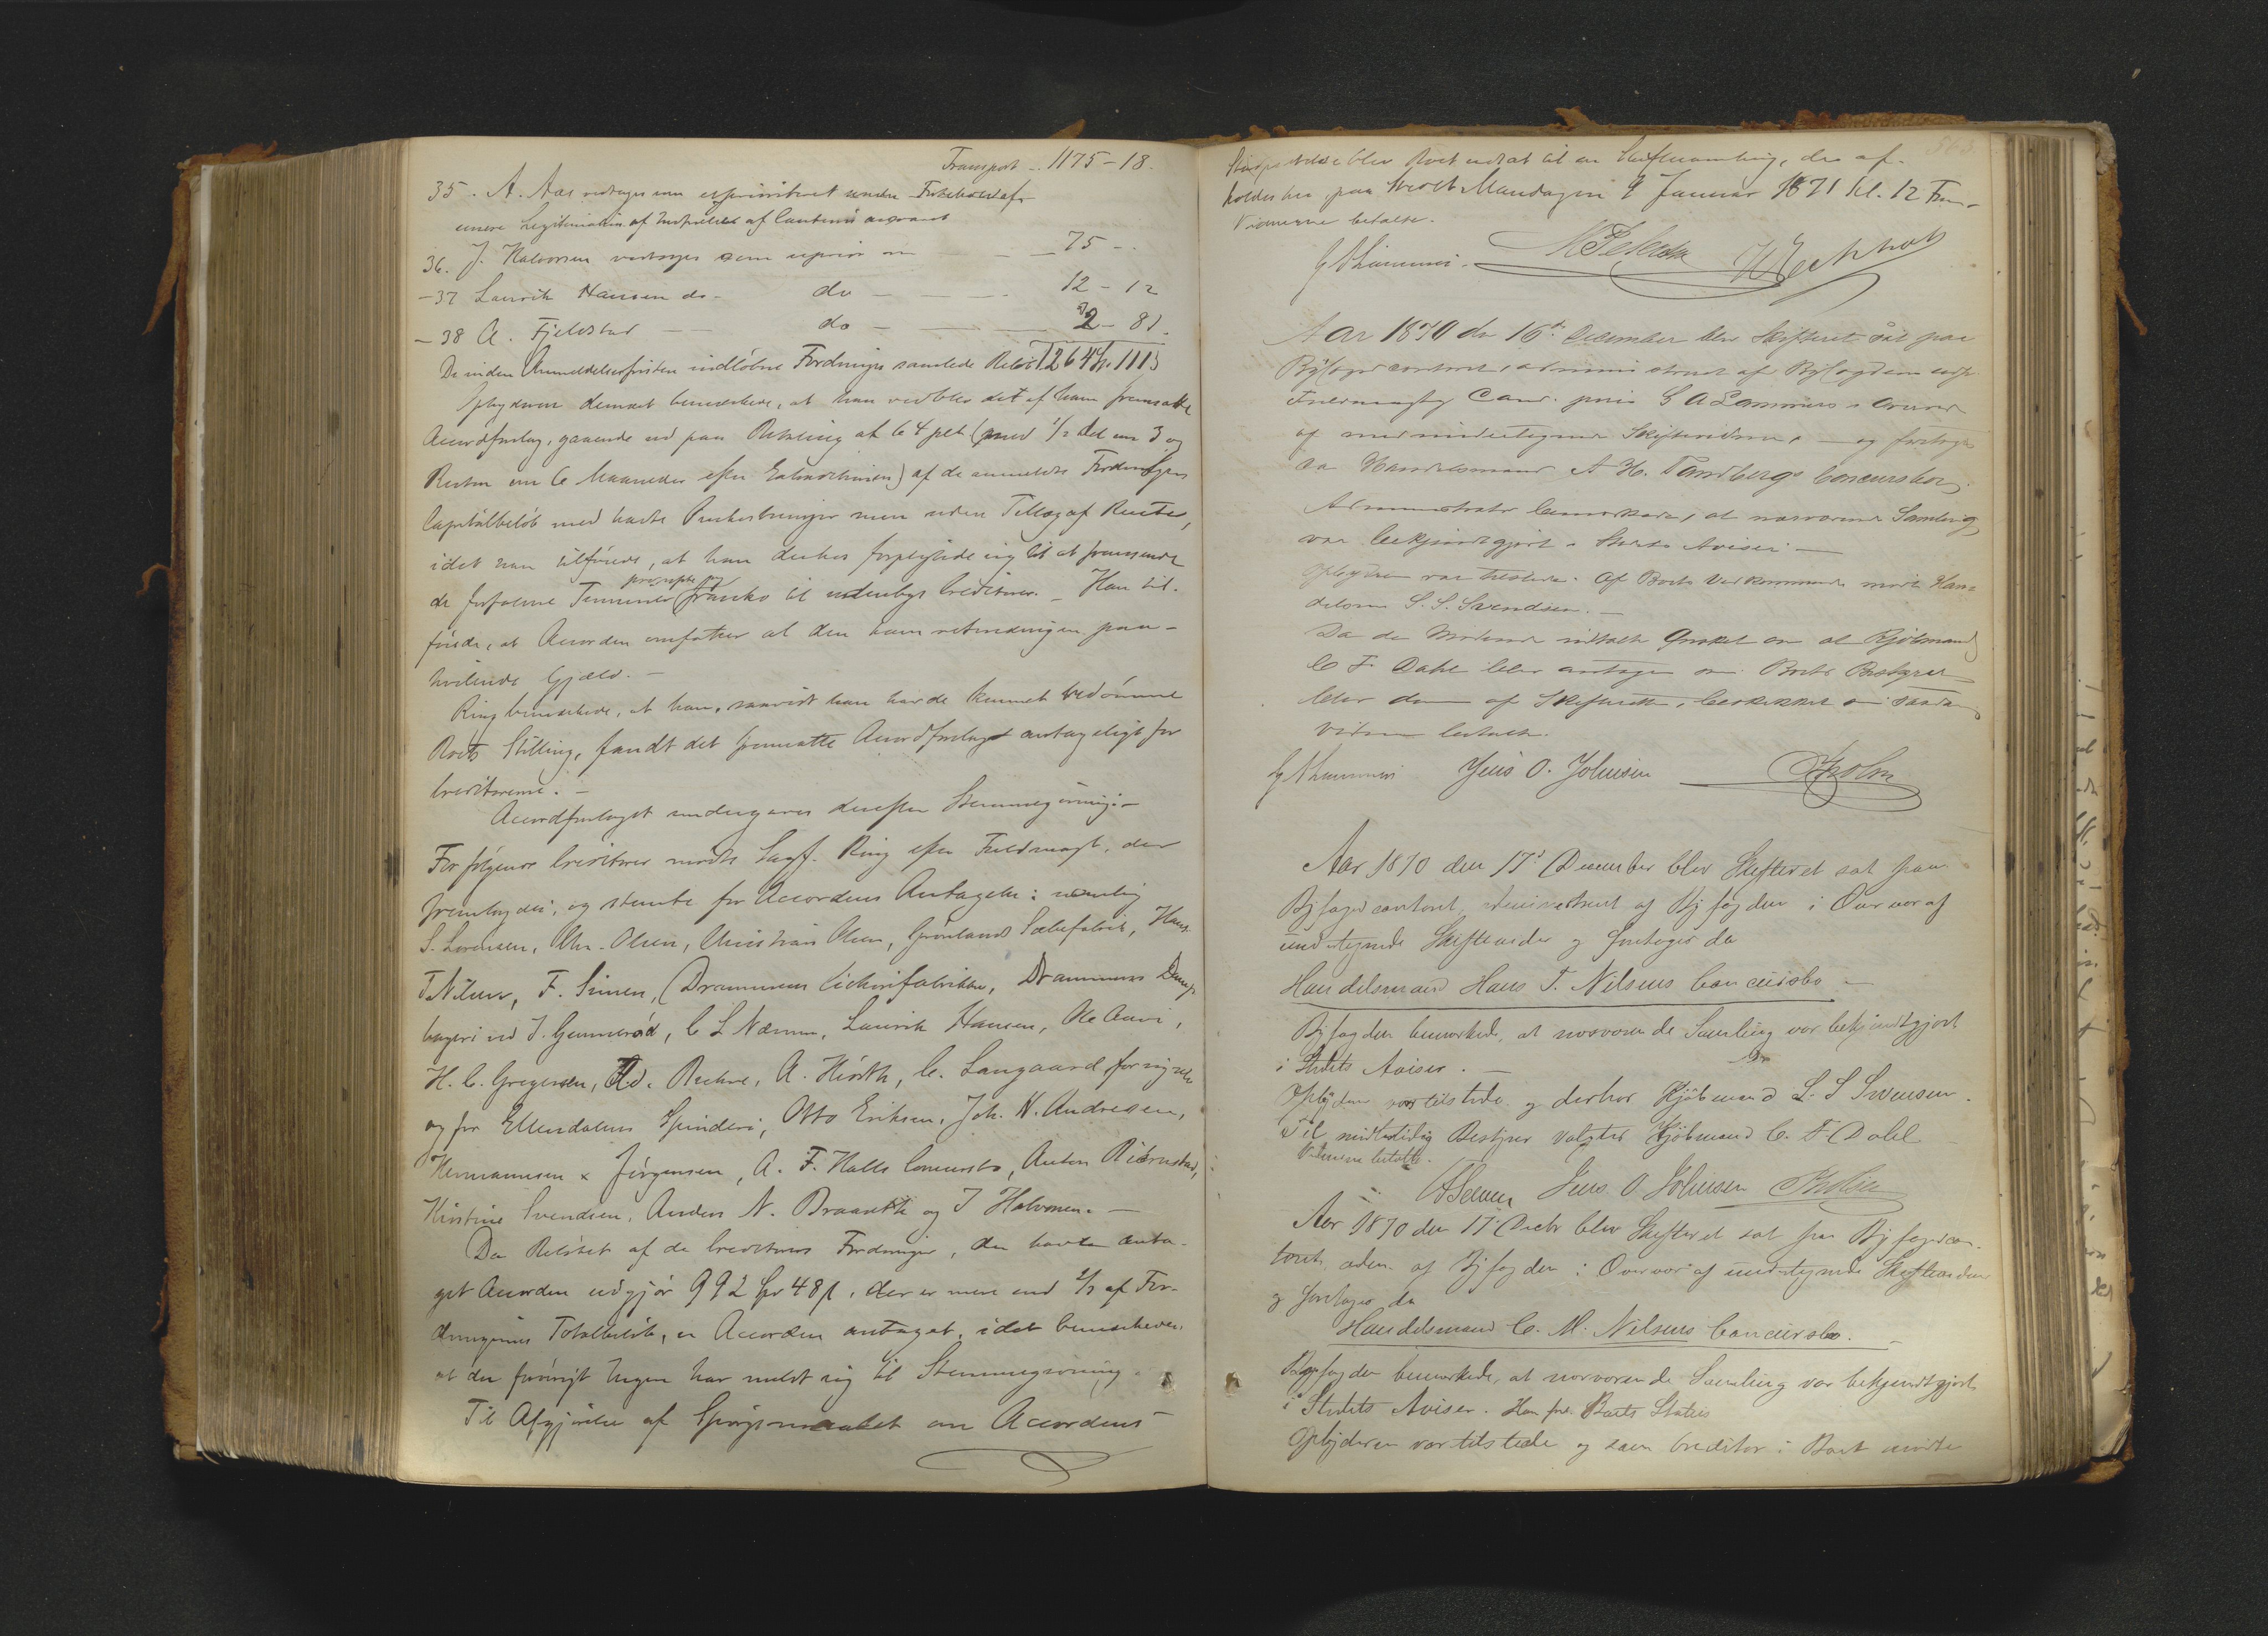 Transport .. 1175 - 18.
35. A. Aas vedtages som uprioriteret under Forbehold af
senere Legitimation af Indfrielse af Cautions ansvaret
75 - .
36. J. Halvorsen vedtages som uprior om
- 37 Laurik Hansen do - do - 12 - 12
- 38 A. Fjeldstad - do - 2 - 81.
De inden Anmeldelsesfristen indløbne Fordringers samlede Beløb 1264 Sp. 111 s
Opbyderen dernæst bemærkede, at han vedblev det af ham fremsatte
Accordforslag, gaaende ud paa Betaling af 64 pCt (med 1/2 Del om 3 og
Resten om 6 Maaneder efter Extraditionen) af de anmeldte Fordringers
Capitalbeløb med havte Omkostninger men uden Tillæg af Renter,
idet han tilføiede, at han derhos forpligtede sig til at fremsende
de forfaldne Terminer prompte og franko til udenbys Creditorer. - Han til-
føiede, at Accorden omfatter al den ham paa-
hvilende Gjæld. -
Ring bemærkede, at han, saavidt han havde kunnet bedømme
Boets Stilling, fandt det fremsatte Accordforslaget antageligt for
Creditorerne. -
Accordforslaget undergaves derefter Stemmegivning: -
For følgende Creditorer mødte Sagf. Ring efter Fuldmagt, der
fremlagdes, og stemte for Accordens Antagelse: nemlig
S. Sørensen, Chr. Olsen, Christian Olsen, Grønlands Sæbefabrik, Hans
T. Nilsen, F. Simen, Drammens Cichorifabrikker, Drammens Damp-
bageri ved J. Gunnerød, C L Narum, Laurik Hansen, Ole Aavi,
H. C. Gregersen, Ad. Buchne, A. Hirsth, C. Langaard for sig selv
og for Ellendalens Spinderi, Otto Eriksen, Joh. N. Andresen,
Hermannsen & Jørgensen, A. F. Halls Concursbo, Anton Biørnstad,
Kirstine Svendsen, Anders N. Braarth og J Halvorsen. -
Da Beløbet af de Creditorers Fordringer, der havde anta-
get Accorden udgjør 992 Sp 48 s, der er mere end 2/3 af For-
dringernes Totalbeløb, er Accorden antaget, idet bemærkedes,
at der forøvrigt Ingen har meldt sig til Stemmegivning.
Til Afgjørelse af Spørgsmaalet om Accordens
565
Stadfæstelse blev Boet udsat til en Skiftesamling, der af-
holdes her paa Stedet Mandagen 9 Januar 1871 Kl. 12 Fm. -
Vidnerne betalte.
G A Lammers.
Aar 1870 den 16de December blev Skifteret sat paa
Byfogedcontoret, administreret af Byfogdens edsv.
Fuldmægtig Cand. juris G A Lammers i Overvær
af medundertegnede Skiftevidner, - og foretoges
da Handelsmand A H. Tandbergs Concursbo,
Administrator bemærkede, at nærværende Samling
var bekjendtgjort i Stedets Aviser -
Opbyderen var tilstede. Af Boets Vedkommende mødte Han-
delsm S. S. Svendsen. -
Da de Mødende udtalte Ønsket om at Kjøbmand
C F. Dahl blev antagen som Boets Bestyrer
blev denne af Skifteretten beskikket som saadan
Vidnerne betalte.
G A Lammers Jens O. Johnsen Holm
Aar 1870 den 17de December blev Skifteret sat paa
Byfogedcontoret, administreret af Byfogden i Overvær af
undertegnede Skiftevidner og foretoges da
Handelsmand Hans T. Nilsens Concursbo -
Byfogden bemærkede, at nærværende Samling var bekjendtgjort
i Stedets Aviser. -
Opbyderen var tilstede og derhos Kjøbmand S. S Svensen.
Til midlertidig Bestyrer valgtes Kjøbmand C. F Dahl
Vidnerne betalte.
Jens O. Johnsen Holm
Aar 1870 den 17de Decbr blev Skifteret sat paa Byfogedcon-
toret, adm. af Byfogden i Overvær af undertegnede Skiftevidner
og foretoges da
Handelsmand C. M. Nilsens Concursbo. -
Byfogden bemærkede, at nærværende Samling var bekjendtgjort
i Stedets Aviser. Han frl. Boets Status
Opbyderen var tilstede og som Creditor i Boet mødte